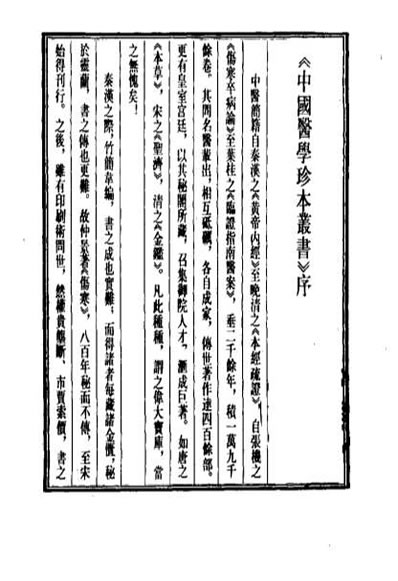 《中國醫學珍本叢書》序
中醫簡籍自秦漢之《黃帝内經》至晚清之《本經疏證》，自張機之
《傷寒卒病論》至葉桂之《臨證指南醫案》，垂二千餘年，積一萬九千
餘卷。其間名醫輩出，相互砥礪，各自成家，傳世著作達四百餘部。
更有皇室宫廷，以其秘閣所藏，召集御院人才，滙成巨著。如唐之
《本草》，宋之《聖濟》，清之《金鑑》。凡此種種，謂之偉大寶庫，當
之無愧矣！
秦漢之際，竹簡韋編，書之成也實難，而得諸者每藏諸金匱，秘
於靈蘭，書之傳也更難。故仲景著《傷寒》，八百年秘而不傳，至宋
始得刊行。之後，雖有印刷術問世，然權貴壟斷、市賈索價，書之